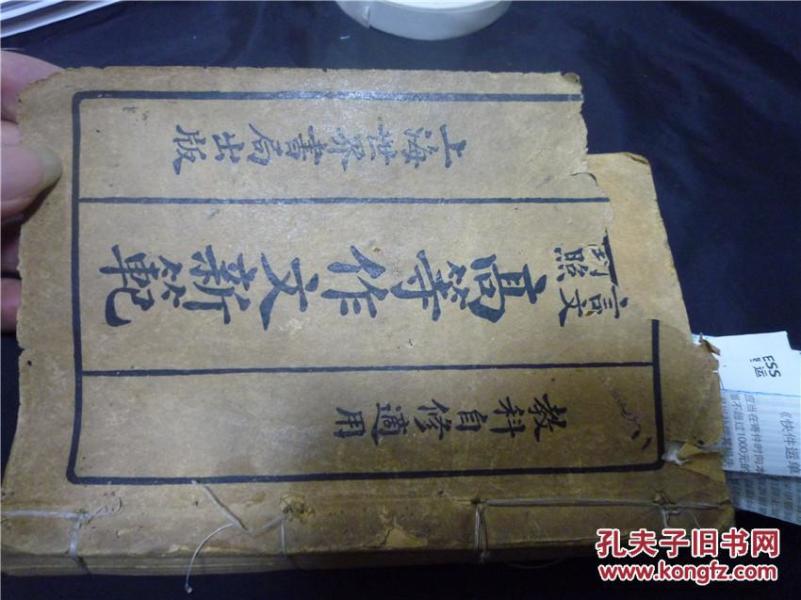 教科自修適用
言文
對照
高等作文新範
上海世界書局出版
ESS
《快件运单
孔夫子旧书网
www.kongfz.com